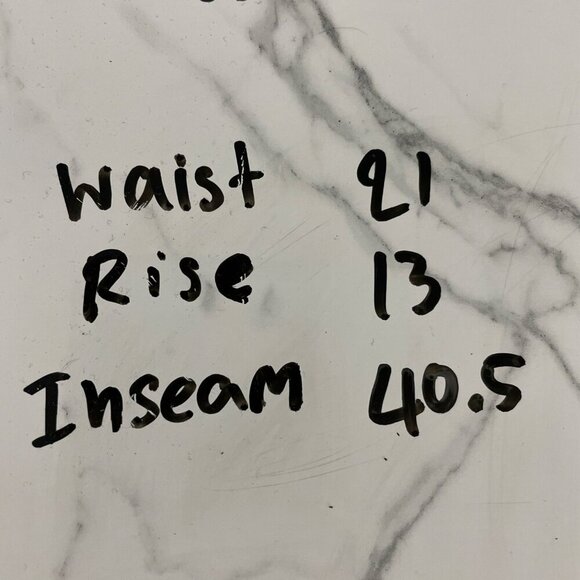 Waist 21
Rise 13
Inseam 40.5